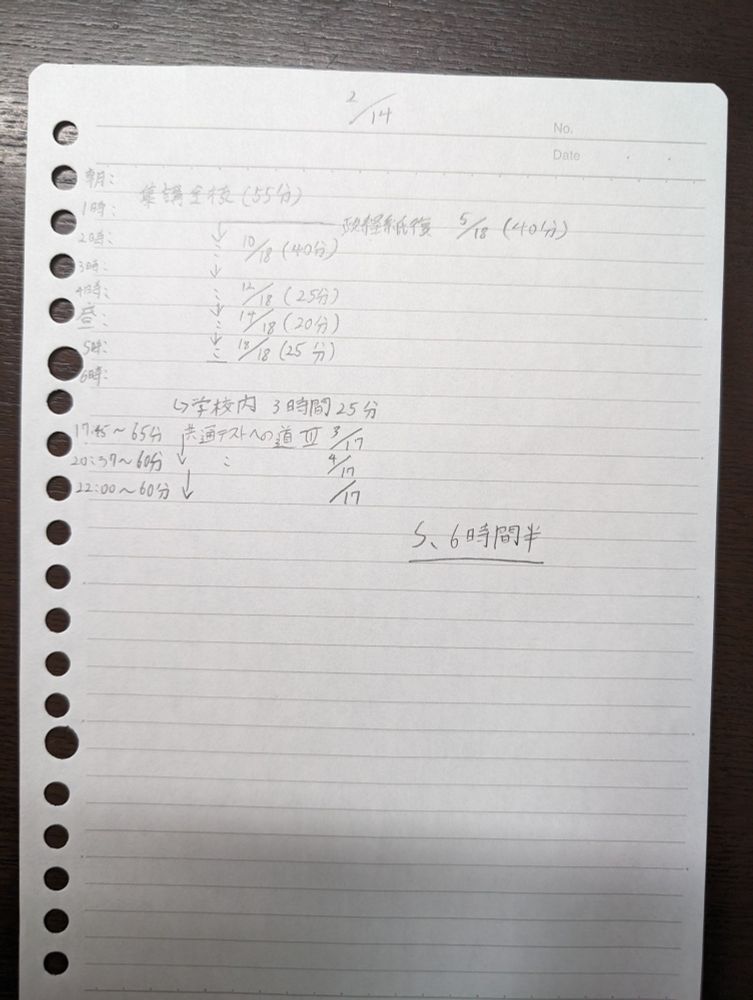 2/14
No.
Date
朝:
集講全複(55分)
1時:
政経紙復 5/18 (40分)
2時: 〃 10/18 (40分)
3時:
4時: 〃 12/18 (25分)
昼: 〃 14/18 (20分)
5時: 〃 18/18 (25分)
6時:
↳学校内 3時間25分
17:45〜65分 共通テストへの道Ⅲ 3/17
20:37〜60分 ↓ 〃 4/17
22:00〜60分 ↓ /17
6時間半